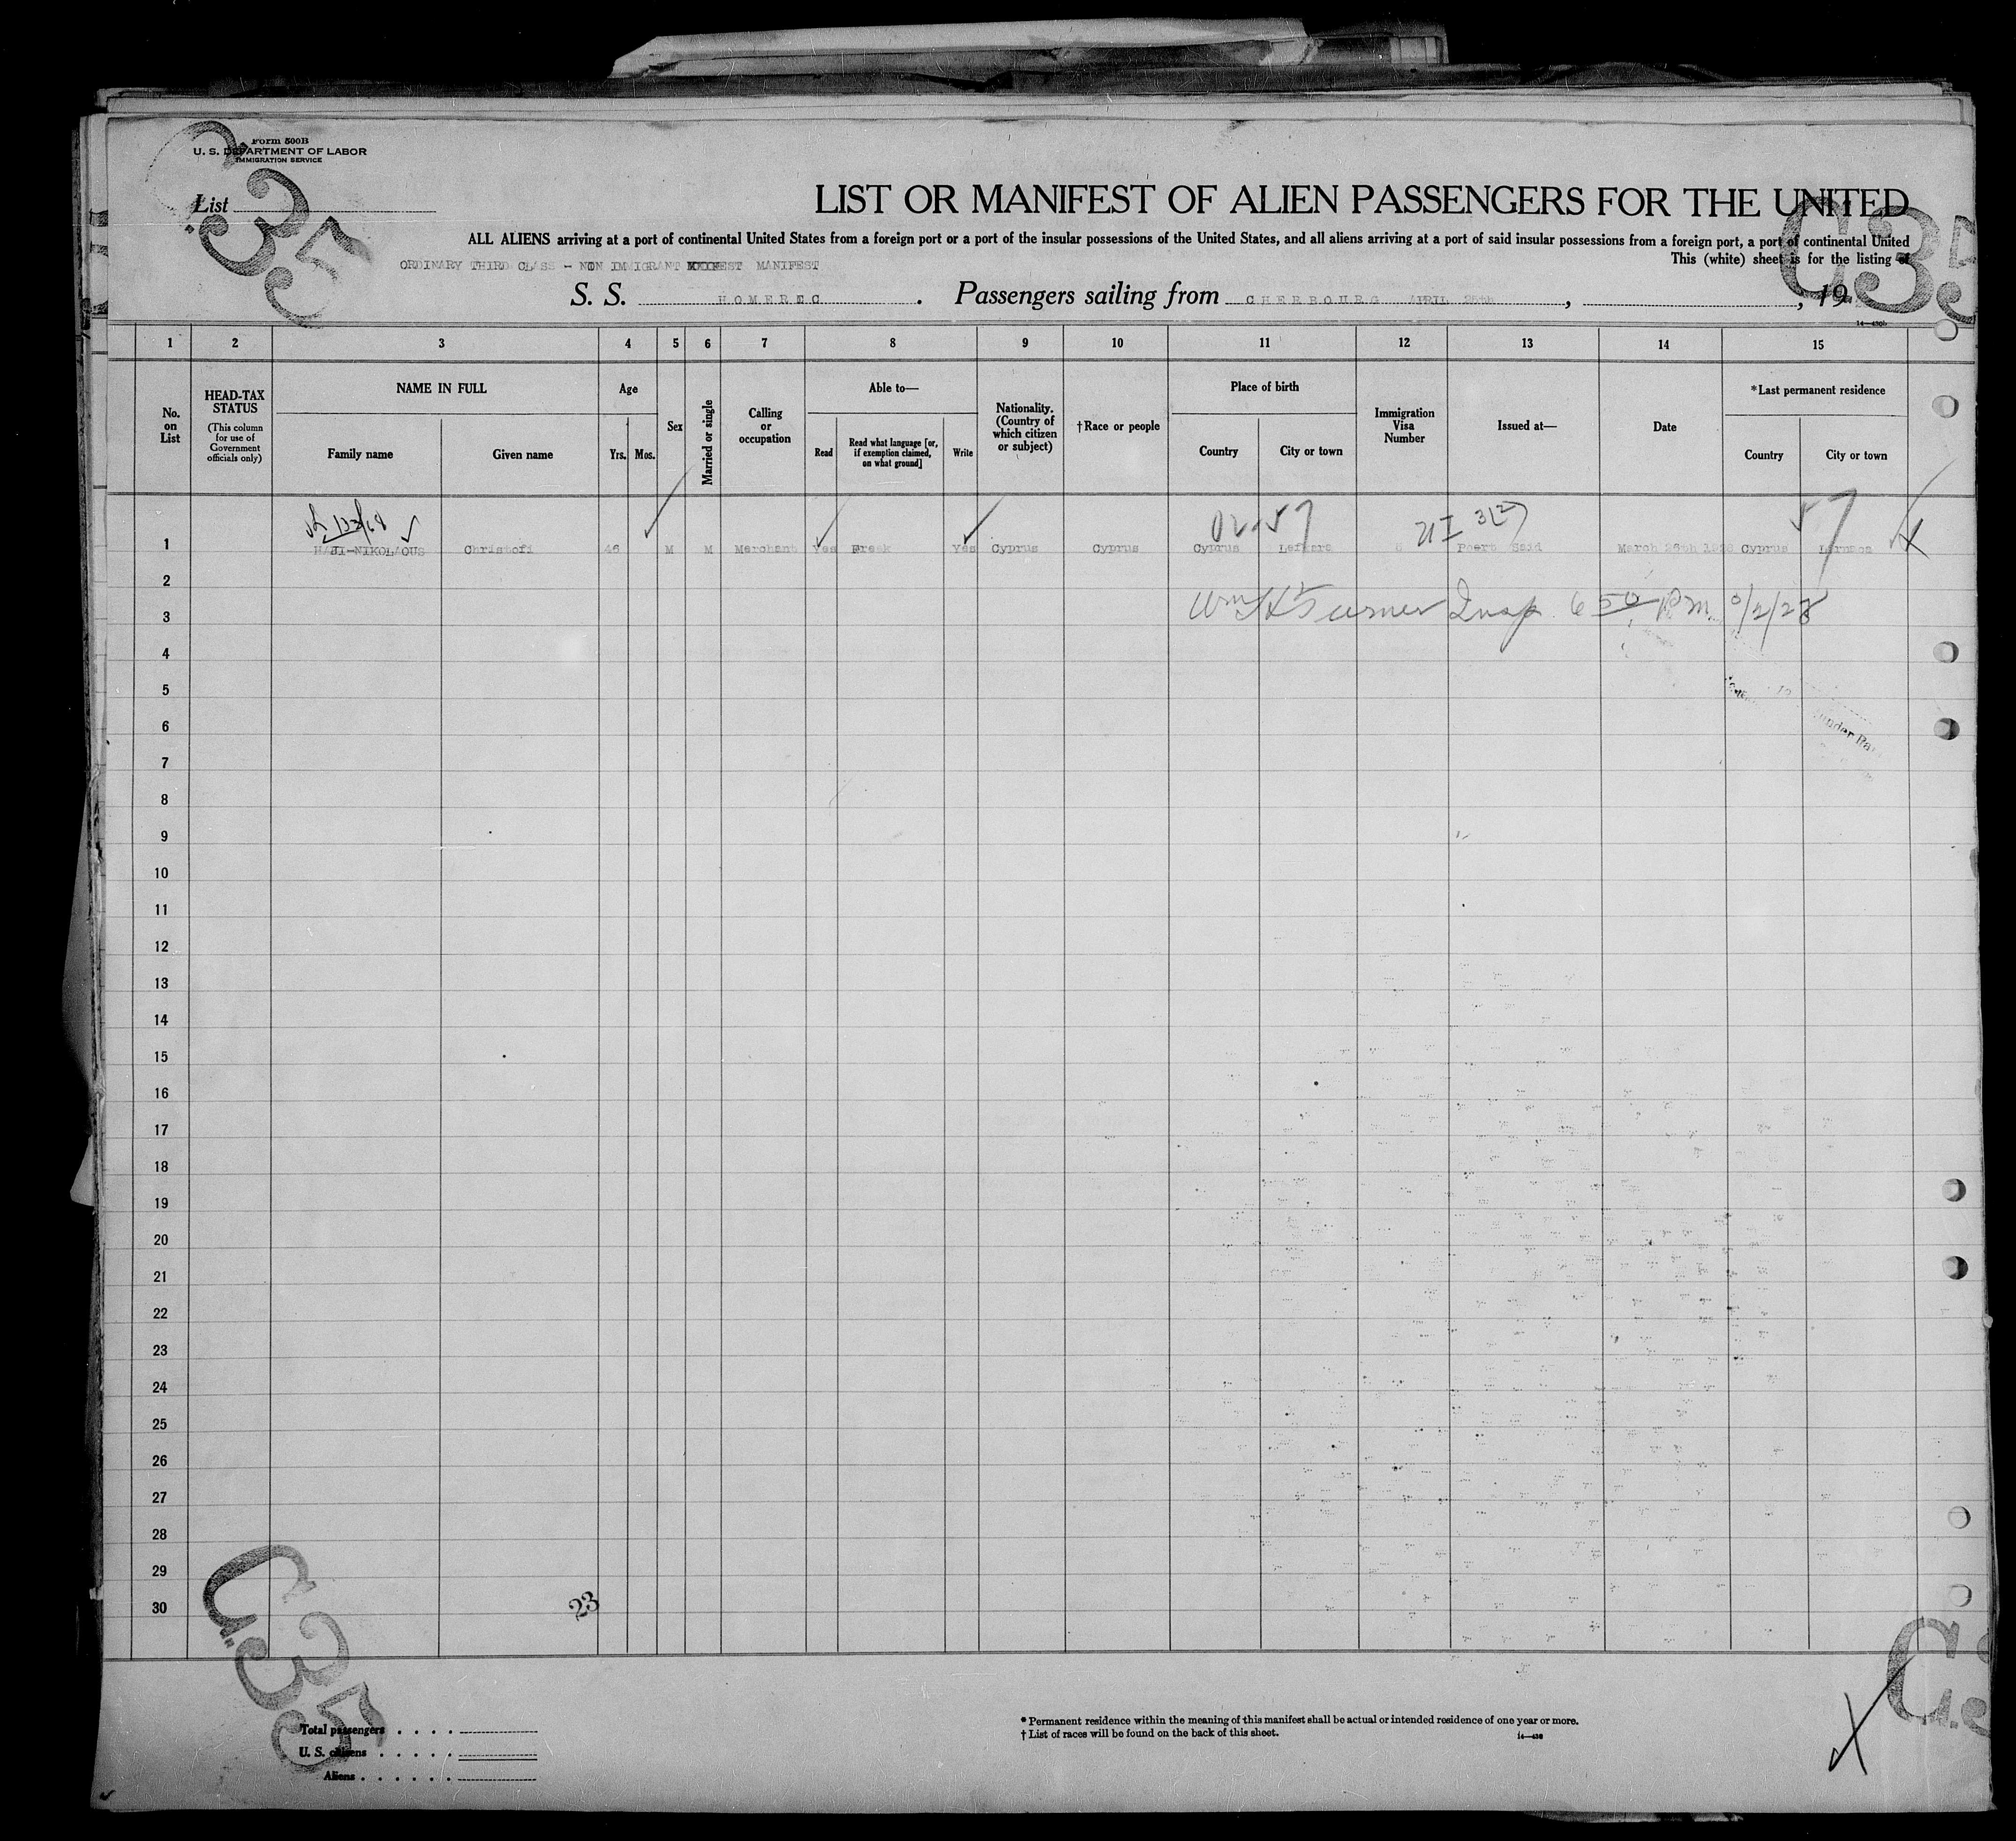 Form 500B
U. S. DEPARTMENT OF LABOR
IMMIGRATION SERVICE
List
LIST OR MANIFEST OF ALIEN PASSENGERS FOR THE UNITED
ALL ALIENS arriving at a port of continental United States from a foreign port or a port of the insular possessions of the United States, and all aliens arriving at a port of said insular possessions from a foreign port, a port of continental United
This (white) sheet is for the listing of
ORDINARY THIRD CLASS - NON IMMIGRANT MANIFEST
S. S. HOMERIC. Passengers sailing from CHERBOURG APRIL 25th, , 19
14-430b
1 2 3 4 5 6 7 8 9 10 11 12 13 14 15
No. on List
HEAD-TAX STATUS (This column for use of Government officials only)
NAME IN FULL
Family name Given name
Age
Yrs. Mos.
Sex
Married or single
Calling or occupation
Able to—
Read Read what language [or, if exemption claimed, on what ground] Write
Nationality. (Country of which citizen or subject)
†Race or people
Place of birth
Country City or town
Immigration Visa Number
Issued at—
Date
*Last permanent residence
Country City or town
02-57 57
1 HAJI-NIKOLAOUS Christofi 46 M M Merchant Yes Greek Yes Cyprus Cyprus Cyprus Lefkara Poert Said March 26th Cyprus Larnaca
2
Wm H Turner Insp 6 50 P.M.
3
4
5
6
under
7
8
9
10
11
12
13
14
15
16
17
18
19
20
21
22
23
24
25
26
27
28
29
30
23
C35
C35
Total passengers
U. S. citizens
Aliens
* Permanent residence within the meaning of this manifest shall be actual or intended residence of one year or more.
† List of races will be found on the back of this sheet.
14-430